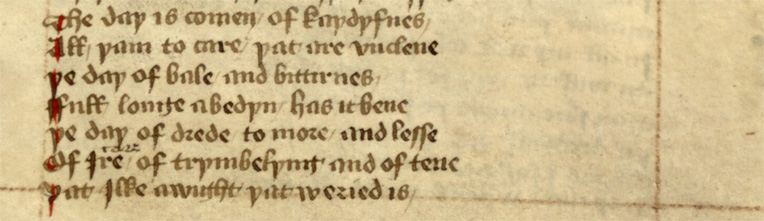 The day is comen of kaydyfnes
All þam to care þat are vnclene
þe day of bale and bittirnes
ffull longe abedyn has it bene
þe day of drede to more and lesse
care
Of Ire of trymbelyng and of tene
þat Ilke a wight þat weried is